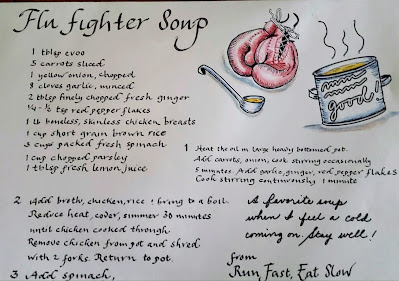 Flu fighter Soup
1 tblsp evoo
5 carrots sliced
1 yellow onion, chopped
8 cloves garlic, minced
2 tblsp finely chopped fresh ginger
1/4 - 1/2 tsp red pepper flakes
1 lb boneless, skinless chicken breasts
1 cup short grain brown rice
3 cups packed fresh spinach
1 cup chopped parsley
1 tblsp fresh lemon juice
good!
1 Heat the oil in large heavy bottomed pot.
Add carrots, onion, cook stirring occasionally
5 minutes. Add garlic, ginger, red pepper flakes
Cook stirring continuously 1 minute
2 Add broth, chicken, rice & bring to a boil.
Reduce heat, cover, simmer 30 minutes
until chicken cooked through
Remove chicken from pot and shred
with 2 forks. Return to pot.
3 Add spinach,
A favorite soup
when I feel a cold
coming on. Stay well!
from
Run Fast, Eat Slow